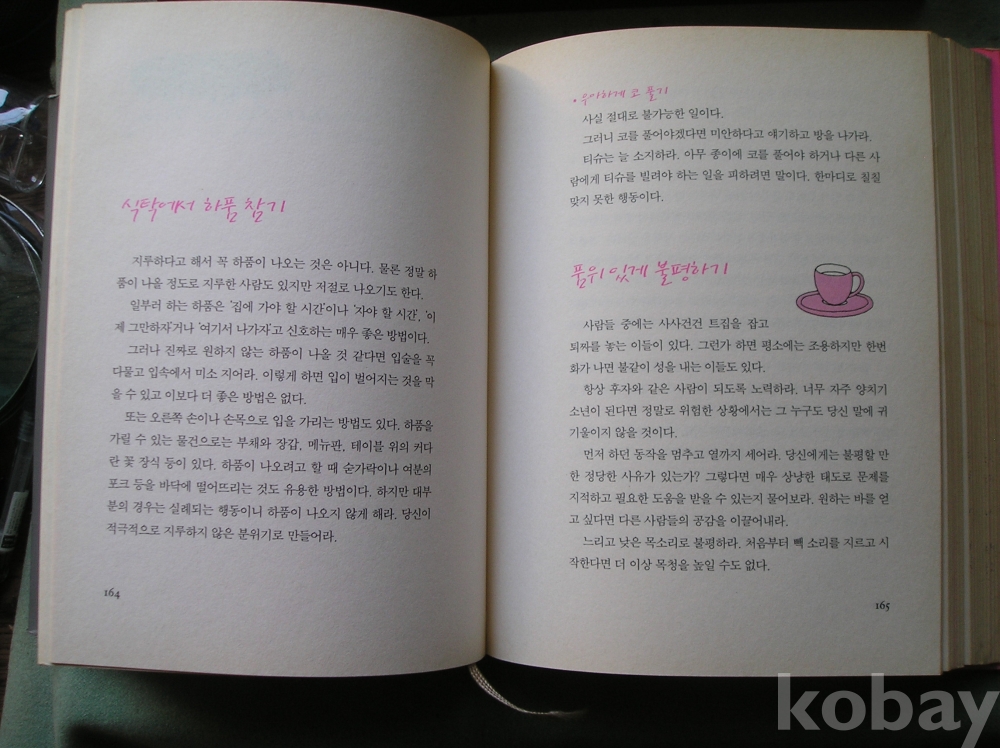 식탁에서 하품 참기
지루하다고 해서 꼭 하품이 나오는 것은 아니다. 물론 정말 하
품이 나올 정도로 지루한 사람도 있지만 저절로 나오기도 한다.
일부러 하는 하품은 '집에 가야 할 시간'이나 '자야 할 시간', '이
제 그만하자'거나 '여기서 나가자'고 신호하는 매우 좋은 방법이다.
그러나 진짜로 원하지 않는 하품이 나올 것 같다면 입술을 꼭
다물고 입속에서 미소 지어라. 이렇게 하면 입이 벌어지는 것을 막
을 수 있고 이보다 더 좋은 방법은 없다.
또는 오른쪽 손이나 손목으로 입을 가리는 방법도 있다. 하품을
가릴 수 있는 물건으로는 부채와 장갑, 메뉴판, 테이블 위의 커다
란 꽃 장식 등이 있다. 하품이 나오려고 할 때 숟가락이나 여분의
포크 등을 바닥에 떨어뜨리는 것도 유용한 방법이다. 하지만 대부
분의 경우는 실례되는 행동이니 하품이 나오지 않게 해라. 당신이
적극적으로 지루하지 않은 분위기로 만들어라.
164
• 우아하게 코 풀기
사실 절대로 불가능한 일이다.
그러니 코를 풀어야겠다면 미안하다고 얘기하고 방을 나가라.
티슈는 늘 소지하라. 아무 종이에 코를 풀어야 하거나 다른 사
람에게 티슈를 빌려야 하는 일을 피하려면 말이다. 한마디로 칠칠
맞지 못한 행동이다.
품위 있게 불평하기
사람들 중에는 사사건건 트집을 잡고
퇴짜를 놓는 이들이 있다. 그런가 하면 평소에는 조용하지만 한번
화가 나면 불같이 성을 내는 이들도 있다.
항상 후자와 같은 사람이 되도록 노력하라. 너무 자주 양치기
소년이 된다면 정말로 위험한 상황에서는 그 누구도 당신 말에 귀
기울이지 않을 것이다.
먼저 하던 동작을 멈추고 열까지 세어라. 당신에게는 불평할 만
한 정당한 사유가 있는가? 그렇다면 매우 상냥한 태도로 문제를
지적하고 필요한 도움을 받을 수 있는지 물어보라. 원하는 바를 얻
고 싶다면 다른 사람들의 공감을 이끌어내라.
느리고 낮은 목소리로 불평하라. 처음부터 빽 소리를 지르고 시
작한다면 더 이상 목청을 높일 수도 없다.
165
kobay